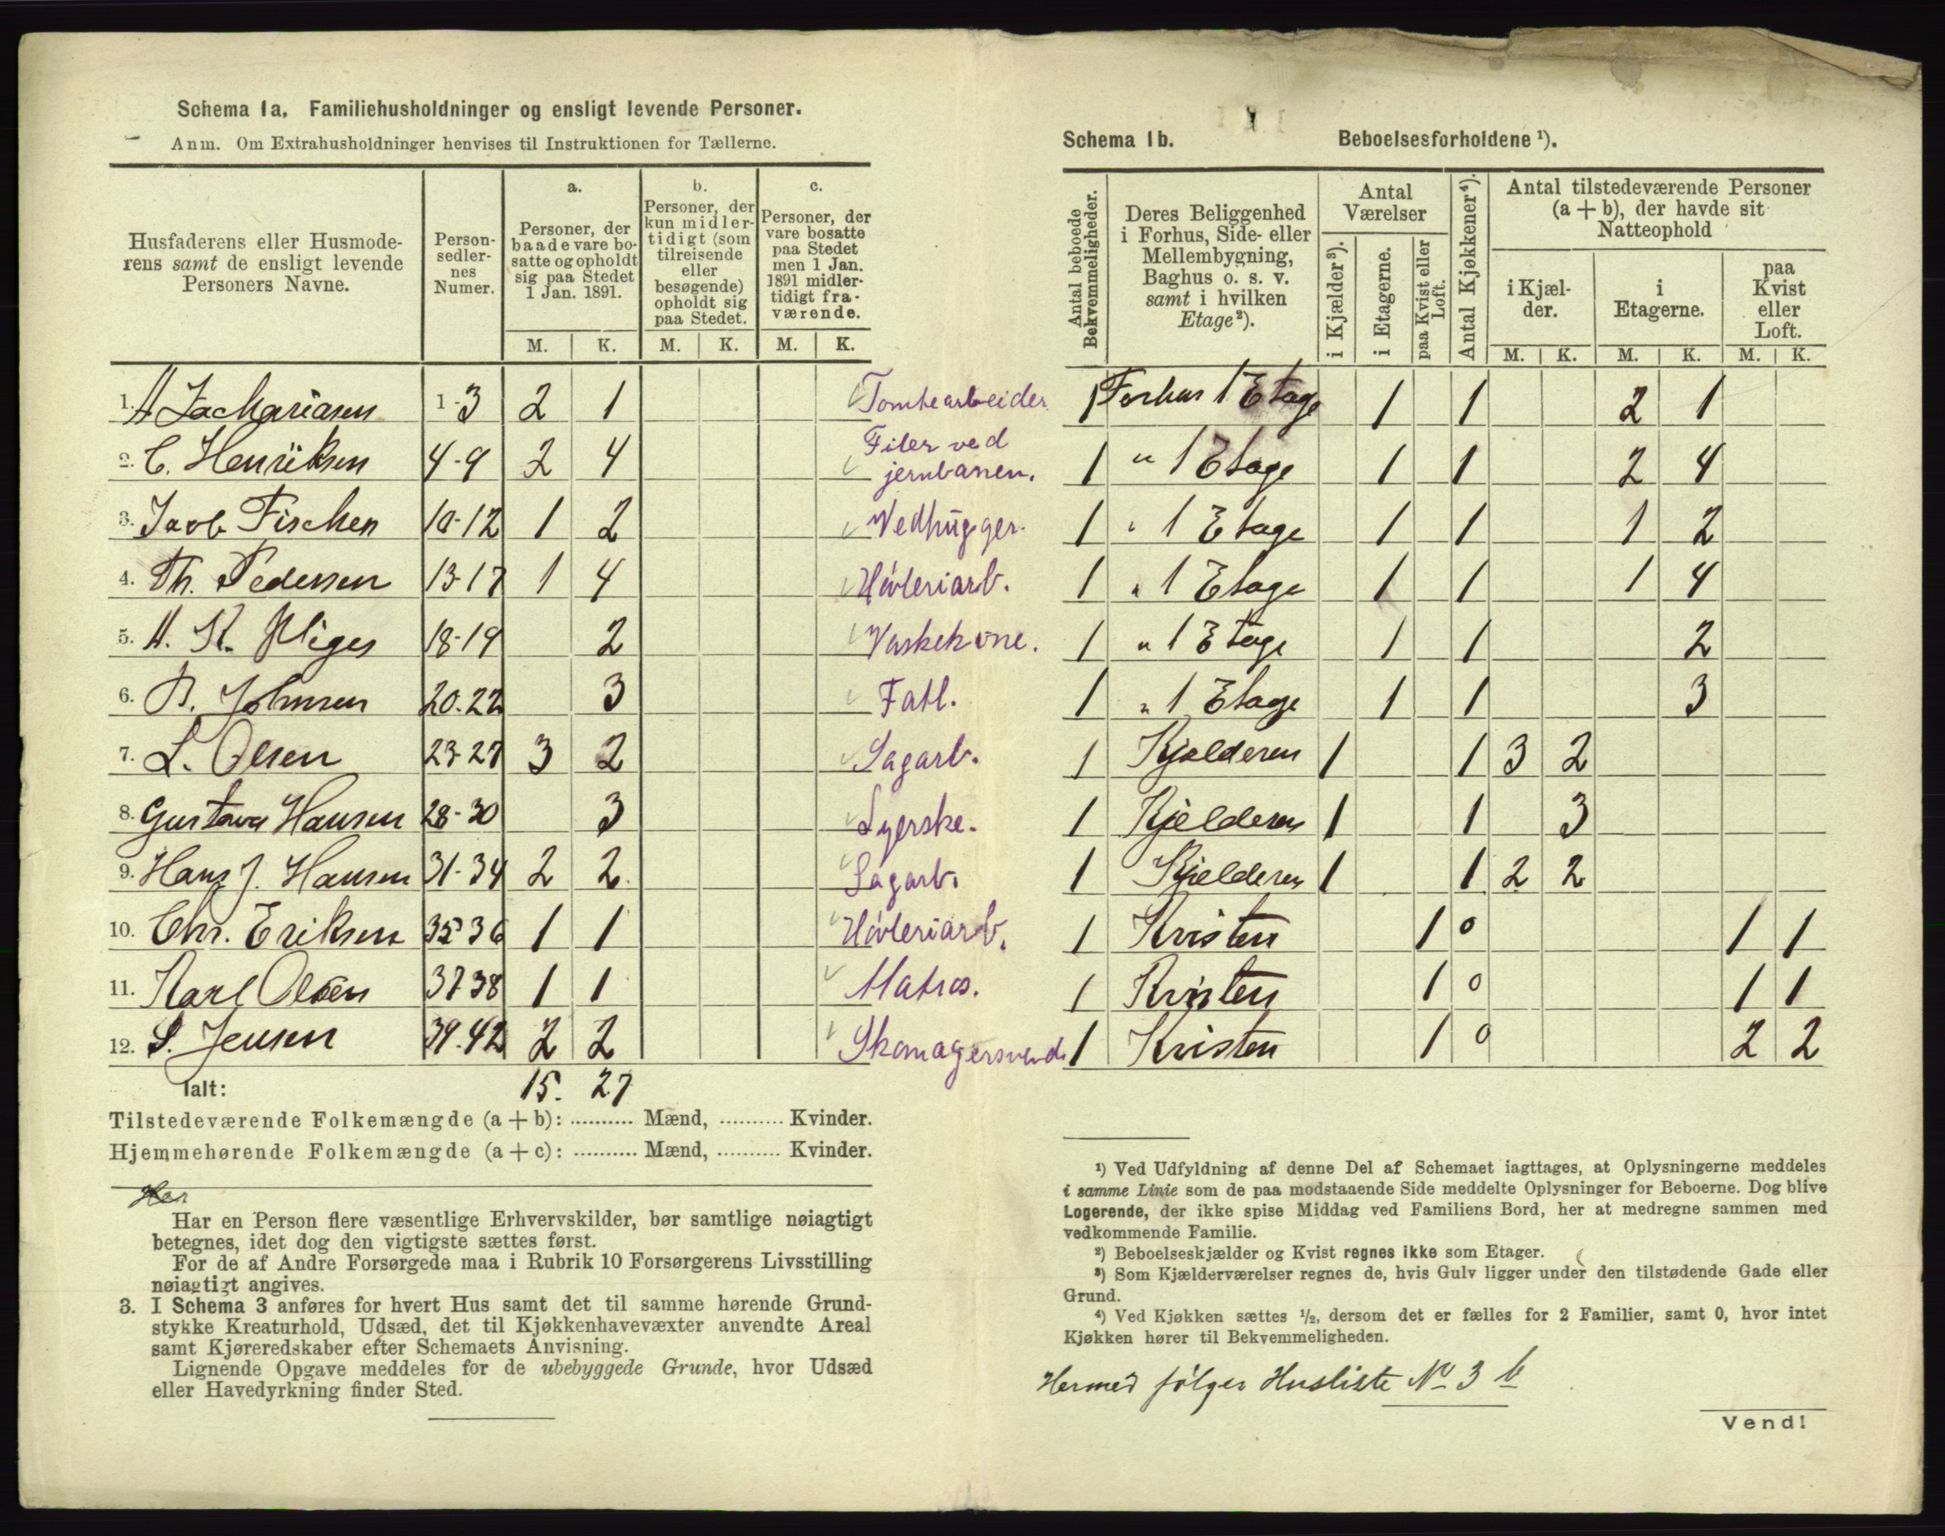 Schema 1a. Familiehusholdninger og ensligt levende Personer.
Anm. Om Extrahusholdninger henvises til Instruktionen for Tællerne.
Husfaderens eller Husmoderens samt de ensligt levende Personers Navne.
Personsedlernes Numer.
a. Personer, der baade vare bosatte og opholdt sig paa Stedet 1 Jan. 1891.
b. Personer, der kun midlertidigt (som tilreisende eller besøgende) opholdt sig paa Stedet.
c. Personer, der vare bosatte paa Stedet men 1 Jan. 1891 midlertidigt fraværende.
M. K. M. K. M. K.
1. A Zachariasen 1-3 2 1 Tomtearbeider
2. C. Henriksen 4-9 2 4 Filer ved jernbanen.
3. Jacob Fischer 10-12 1 2 Vedhugger.
4. Th. Pedersen 13-17 1 4 Høvleriarb.
5. A. K. 18-19 2 Vaskekone.
6. B. Johnsen 20-22 3 Fatl.
7. L. Olsen 23-27 3 2 Sagarb.
8. Gustava Hansen 28-30 3 Syerske.
9. Hans J. Hansen 31-34 2 2 Sagarb.
10. Chr. Eriksen 35-36 1 1 Høvleriarb.
11. Karl Olsen 37-38 1 1 Matros.
12. S. Jensen 39-42 2 2 Skomagersvend
Ialt: 15. 27
Tilstedeværende Folkemængde (a + b): .......... Mænd, .......... Kvinder.
Hjemmehørende Folkemængde (a + c): .......... Mænd, .......... Kvinder.
Har
Har en Person flere væsentlige Erhvervskilder, bør samtlige nøiagtigt
betegnes, idet dog den vigtigste sættes først.
For de af Andre Forsørgede maa i Rubrik 10 Forsørgerens Livsstilling
nøiagtigt angives.
3. I Schema 3 anføres for hvert Hus samt det til samme hørende Grund-
stykke Kreaturhold, Udsæd, det til Kjøkkenhavevæxter anvendte Areal
samt Kjøreredskaber efter Schemaets Anvisning.
Lignende Opgave meddeles for de ubebyggede Grunde, hvor Udsæd
eller Havedyrkning finder Sted.
Schema 1b. Beboelsesforholdene ¹).
Antal beboede Bekvemmeligheder.
Deres Beliggenhed i Forhus, Side- eller Mellembygning, Baghus o. s. v. samt i hvilken Etage²).
Antal Værelser
i Kjælder³).
i Etagerne.
paa Kvist eller Loft.
Antal Kjøkkener⁴).
Antal tilstedeværende Personer (a + b), der havde sit Natteophold
i Kjælder.
i Etagerne.
paa Kvist eller Loft.
M. K. M. K. M. K.
1 Forhus 1 Etage 1 1 2 1
1 " 1 Etage 1 1 2 4
1 " 1 Etage 1 1 1 2
1 " 1 Etage 1 1 1 4
1 " 1 Etage 1 1 2
1 " 1 Etage 1 1 3
1 Kjelderen 1 1 3 2
1 Kjelderen 1 1 3
1 Kjelderen 1 1 2 2
1 Kvisten 1 0 1 1
1 Kvisten 1 0 1 1
1 Kvisten 1 0 2 2
¹) Ved Udfyldning af denne Del af Schemaet iagttages, at Oplysningerne meddeles
i samme Linie som de paa modstaaende Side meddelte Oplysninger for Beboerne. Dog blive
Logerende, der ikke spise Middag ved Familiens Bord, her at medregne sammen med
vedkommende Familie.
²) Beboelseskjælder og Kvist regnes ikke som Etager.
³) Som Kjælderværelser regnes de, hvis Gulv ligger under den tilstødende Gade eller
Grund.
⁴) Ved Kjøkken sættes ½, dersom det er fælles for 2 Familier, samt 0, hvor intet
Kjøkken hører til Bekvemmeligheden.
Hermed følger Husliste No 3 b
Vend!